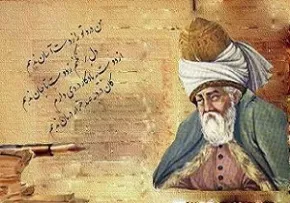 من درد تو را ز دست آسان ندهم
دل بر نکنم ز دوست تا جان ندهم
از دوست به یادگار دردی دارم
کان درد به صد هزار درمان ندهم